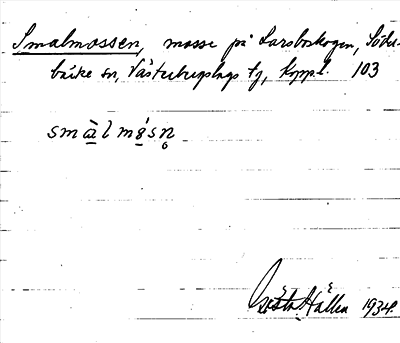 Smalmossen, mosse på Larsboskogen, Söder-
bärke sn, Västerbergslags tg, Koppl. 103
smàlmósn̥
Gösta Hallén 1934.